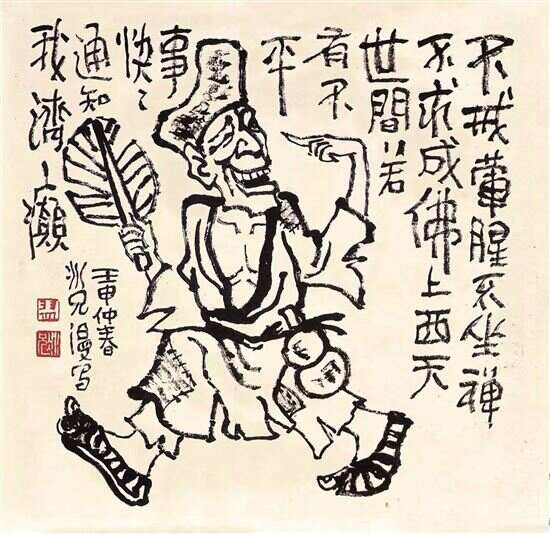 不戒葷腥不坐禪
不求成佛上西天
世間若
有不
平
事
快〻
通知
我濟癲
壬申仲春
冰兄漫写